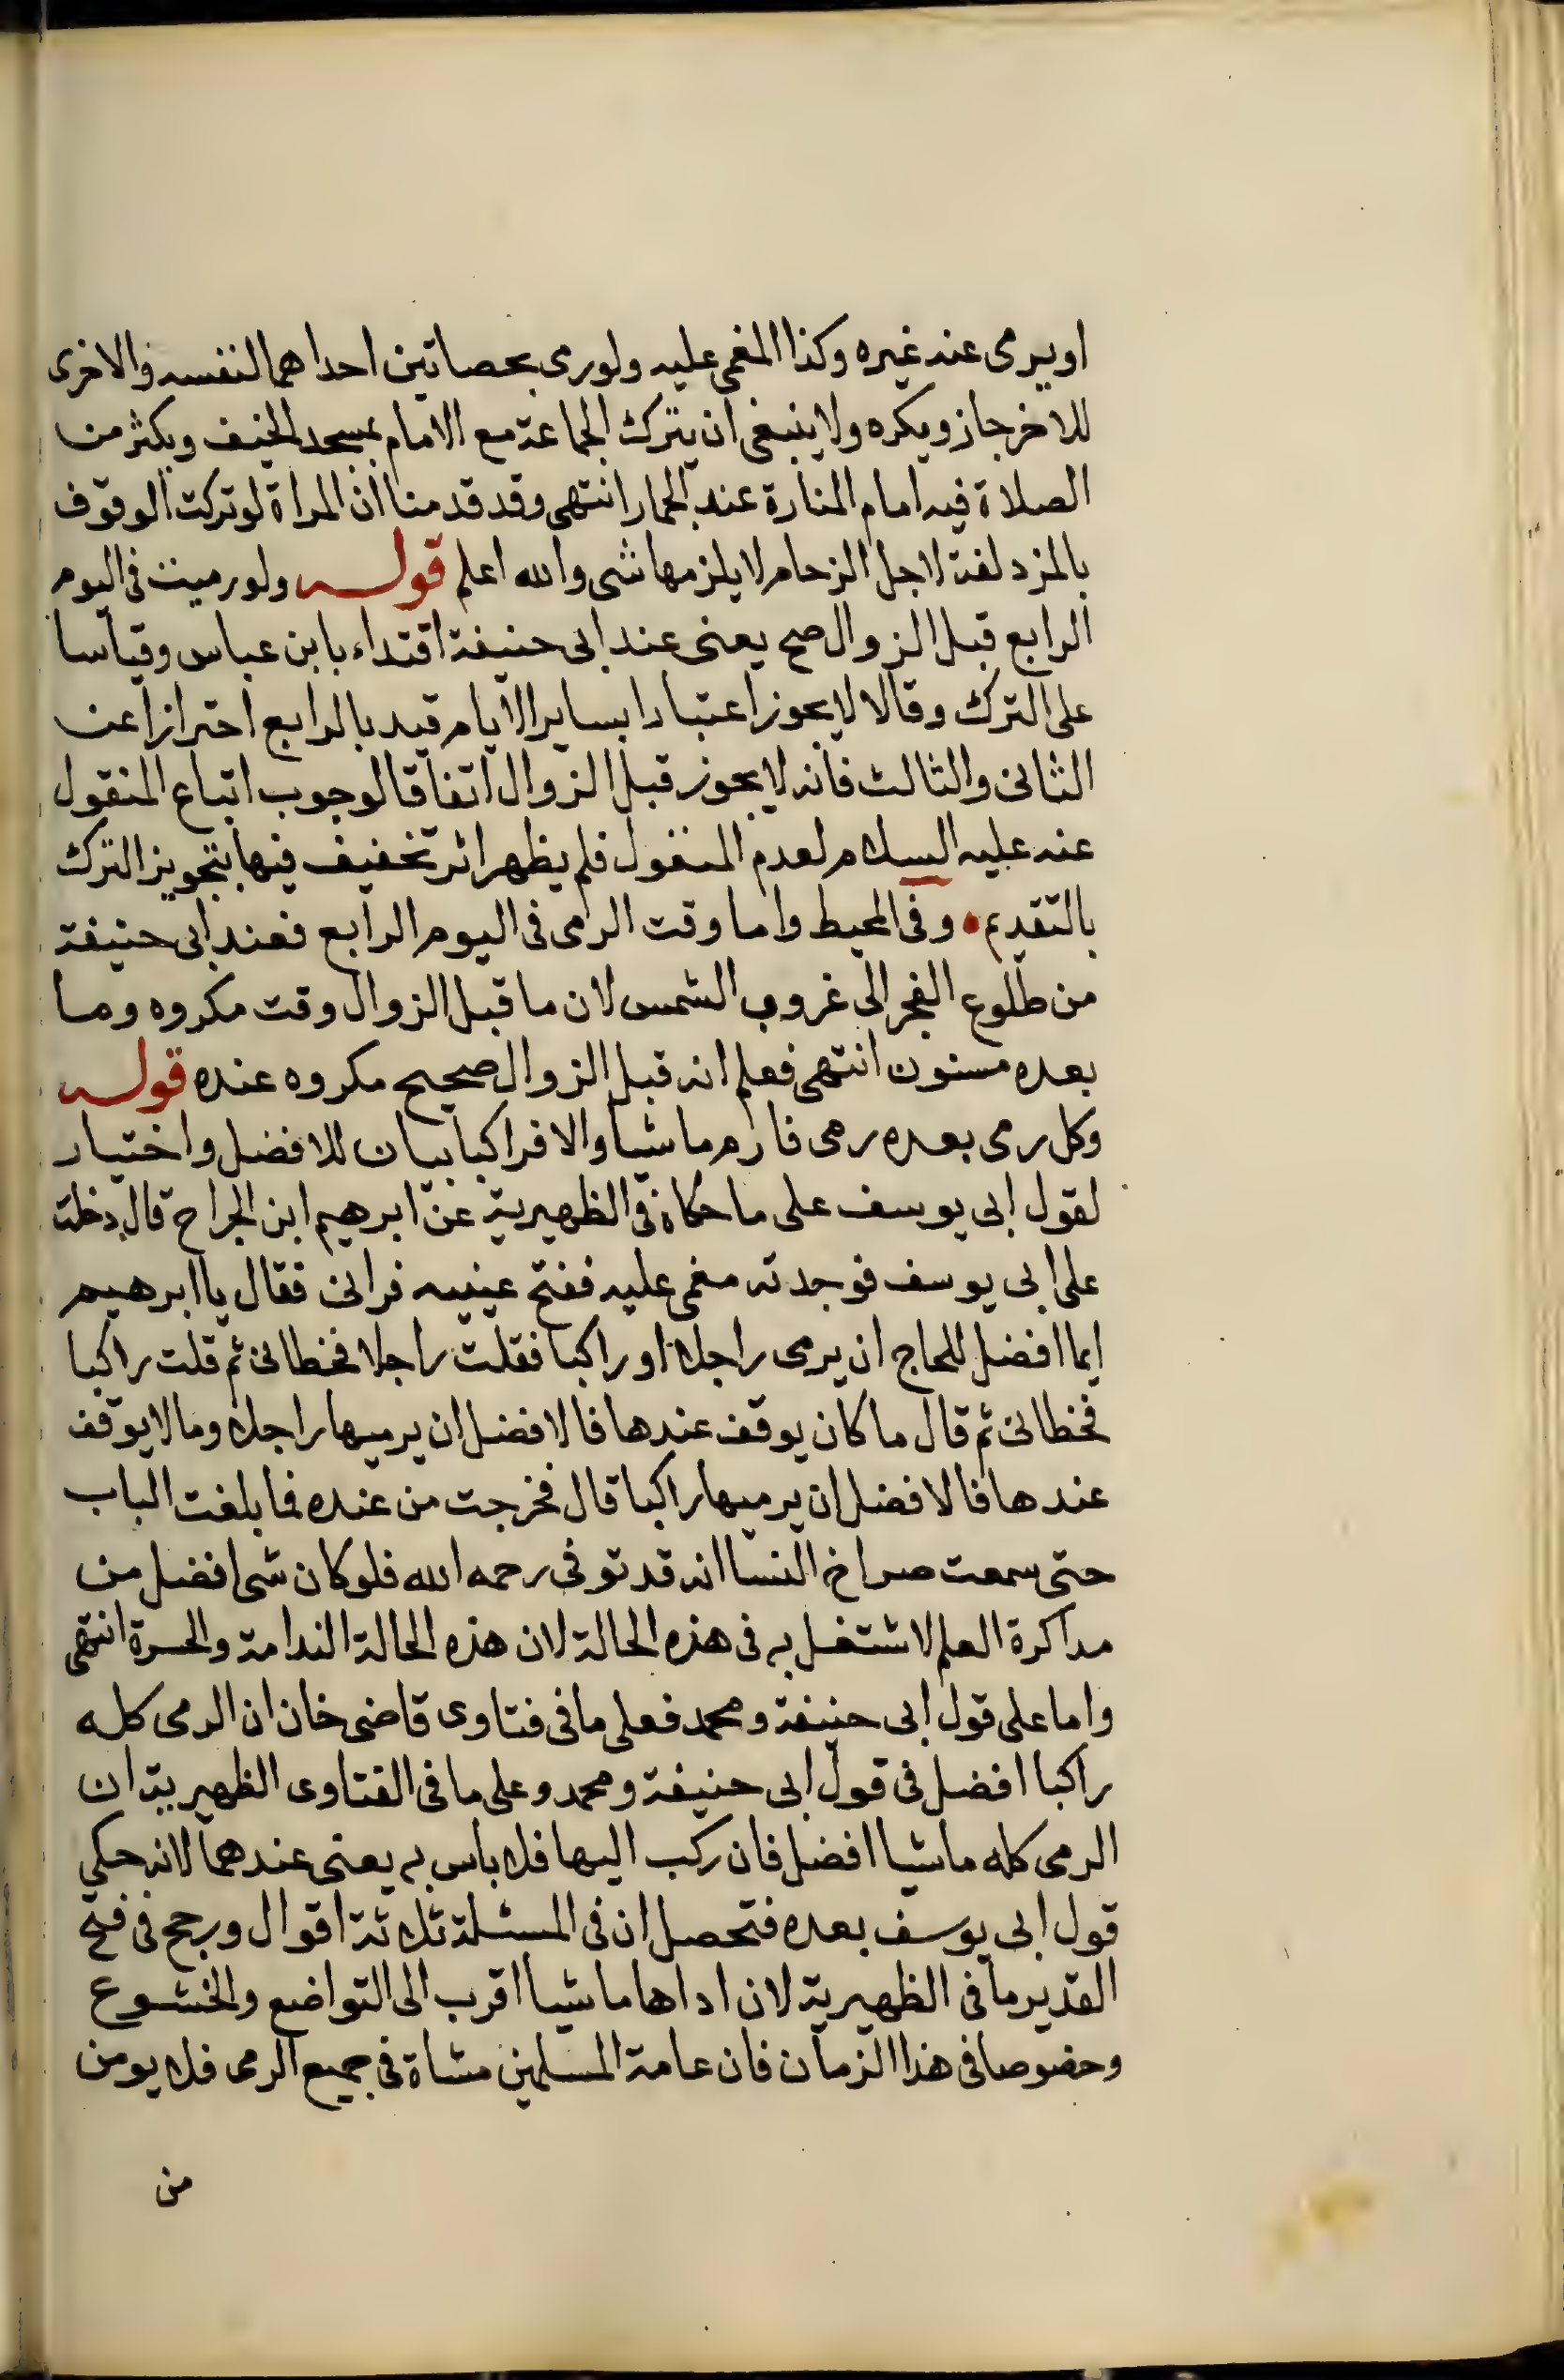 او يرمى عنه غيره وكذا المغمى عليه ولو رمى بحصاتين احداهما لنفسه والاخرى
للاخر جاز ويكره ولا ينبغى ان يترك الجماعة مع الامام بمسجد الخيف ويكثر من
الصلاة فيه امام المنارة عند الجمار انتهى وقد قدمنا ان المراة لو تركت الوقوف
بالمزدلفة لاجل الزحام لا يلزمها شى والله اعلم قوله ولو رميت فى اليوم
الرابع قبل الزوال صح يعنى عند ابى حنيفة اقتداء بابن عباس وقياسا
على الترك وقالا لا يجوز اعتبارا بساير الايام قيد بالرابع احترازا عن
الثانى والثالث فانه لا يجوز قبل الزوال اتفاقا لوجوب اتباع المنقول
عنه عليه السلام لعدم المنقول فلم يظهر اثر تخفيف فيها بتجويز الترك
بالتقديم • وفى المحيط واما وقت الرمى فى اليوم الرابع فعند ابى حنيفة
من طلوع الفجر الى غروب الشمس لان ما قبل الزوال وقت مكروه وما
بعده مسنون انتهى فعلم انه قبل الزوال صحيح مكروه عنده قوله
وكل رمى بعده رمى فارم ماشيا والا فراكبا بيان للافضل واختيار
لقول ابى يوسف على ما حكاه فى الظهيرية عن ابرهيم ابن الجراح قال دخلت
على ابى يوسف فوجدته مغمى عليه ففتح عينيه فرانى فقال يا ابرهيم
ايما افضل للحاج ان يرمى راجلا او راكبا فقلت راجلا فخطانى ثم قلت راكبا
فخطانى ثم قال ما كان يوقف عندها فالافضل ان يرميها راجلا وما لا يوقف
عندها فالافضل ان يرميها راكبا قال فخرجت من عنده فما بلغت الباب
حتى سمعت صراخ النسا انه قد توفى رحمه الله فلو كان شى افضل من
مداكرة العلم لاشتغل به فى هذه الحالة لان هذه الحالة الندامة والحسرة انتهى
واما على قول ابى حنيفة ومحمد فعلى ما فى فتاوى قاضى خان ان الرمى كله
راكبا افضل فى قول ابى حنيفة ومحمد وعلى ما فى الفتاوى الظهيرية ان
الرمى كله ماشيا افضل فان ركب اليها فلا باس به يعنى عندهما لانه حكي
قول ابى يوسف بعده فتحصل ان فى المسئلة ثلاثة اقوال ورجح فى فتح
القدير ما فى الظهيرية لان اداها ماشيا اقرب الى التواضع والخشوع
وخصوصا فى هذا الزمان فان عامة المسلمين مشاة فى جميع الرمى فلا يومن
من